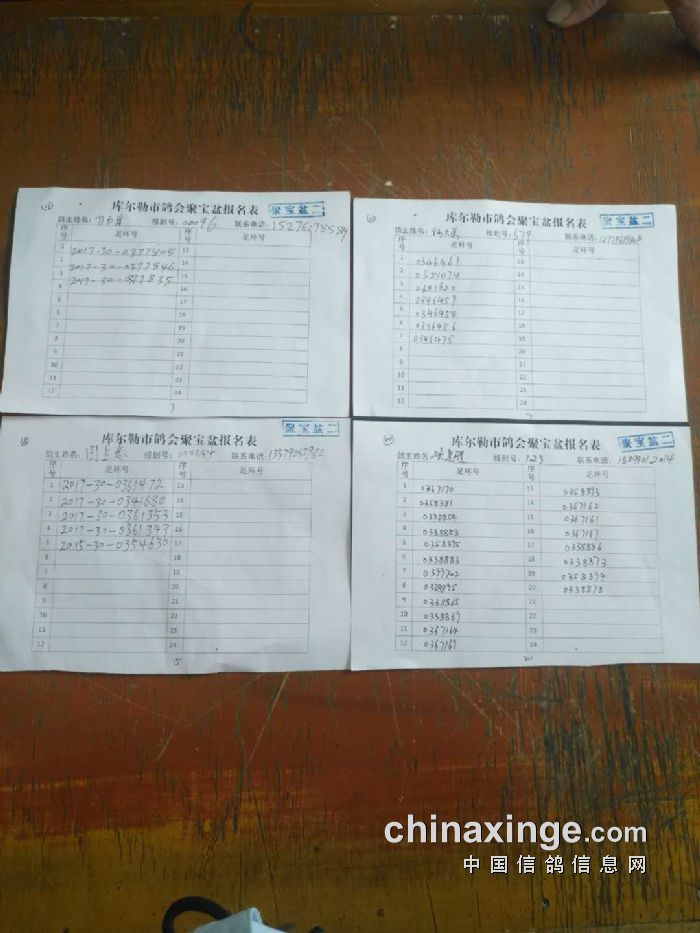 库尔勒市鸽会聚宝盆报名表 聚宝盆二
鸽主姓名: 报到号: 00096 联系电话:
序号 足环号 序号 足环号
1 2017-30-0377805 13
2 2017-30-0377846 14
3 2017-30-0377835 15
4 16
5 17
6 18
7 19
8 20
9 21
10 22
11 23
12 24
3
库尔勒市鸽会聚宝盆报名表 聚宝盆二
鸽主姓名: 报到号: 679 联系电话:
序号 足环号 序号 足环号
1 0346461 13
2 0351074 14
3 15
4 0346459 16
5 0346458 17
6 0346456 18
7 0346475 19
8 20
9 21
10 22
11 23
12 24
7
库尔勒市鸽会聚宝盆报名表 聚宝盆二
鸽主姓名: 报到号: 联系电话: 13579013952
序号 足环号 序号 足环号
1 2017-30-0361472 13
2 2017-30-0341680 14
3 2017-30-0361353 15
4 2017-30-0361343 16
5 2015-30-0354630 17
6 18
7 19
8 20
9 21
10 22
11 23
12 24
5
库尔勒市鸽会聚宝盆报名表 聚宝盆二
鸽主姓名: 报到号: 123 联系电话: 13899012014
序号 足环号 序号 足环号
1 0367170 13 0358393
2 0358381 14 0367162
3 0338854 15 0367161
4 0338853 16 0367167
5 0358395 17 0338886
6 0338883 18 0338873
7 0397702 19 0358394
8 0338895 20 0338878
9 0338865 21
10 0338869 22
11 0367164 23
12 0367169 24
20
chinaxinge.com
中国信鸽信息网